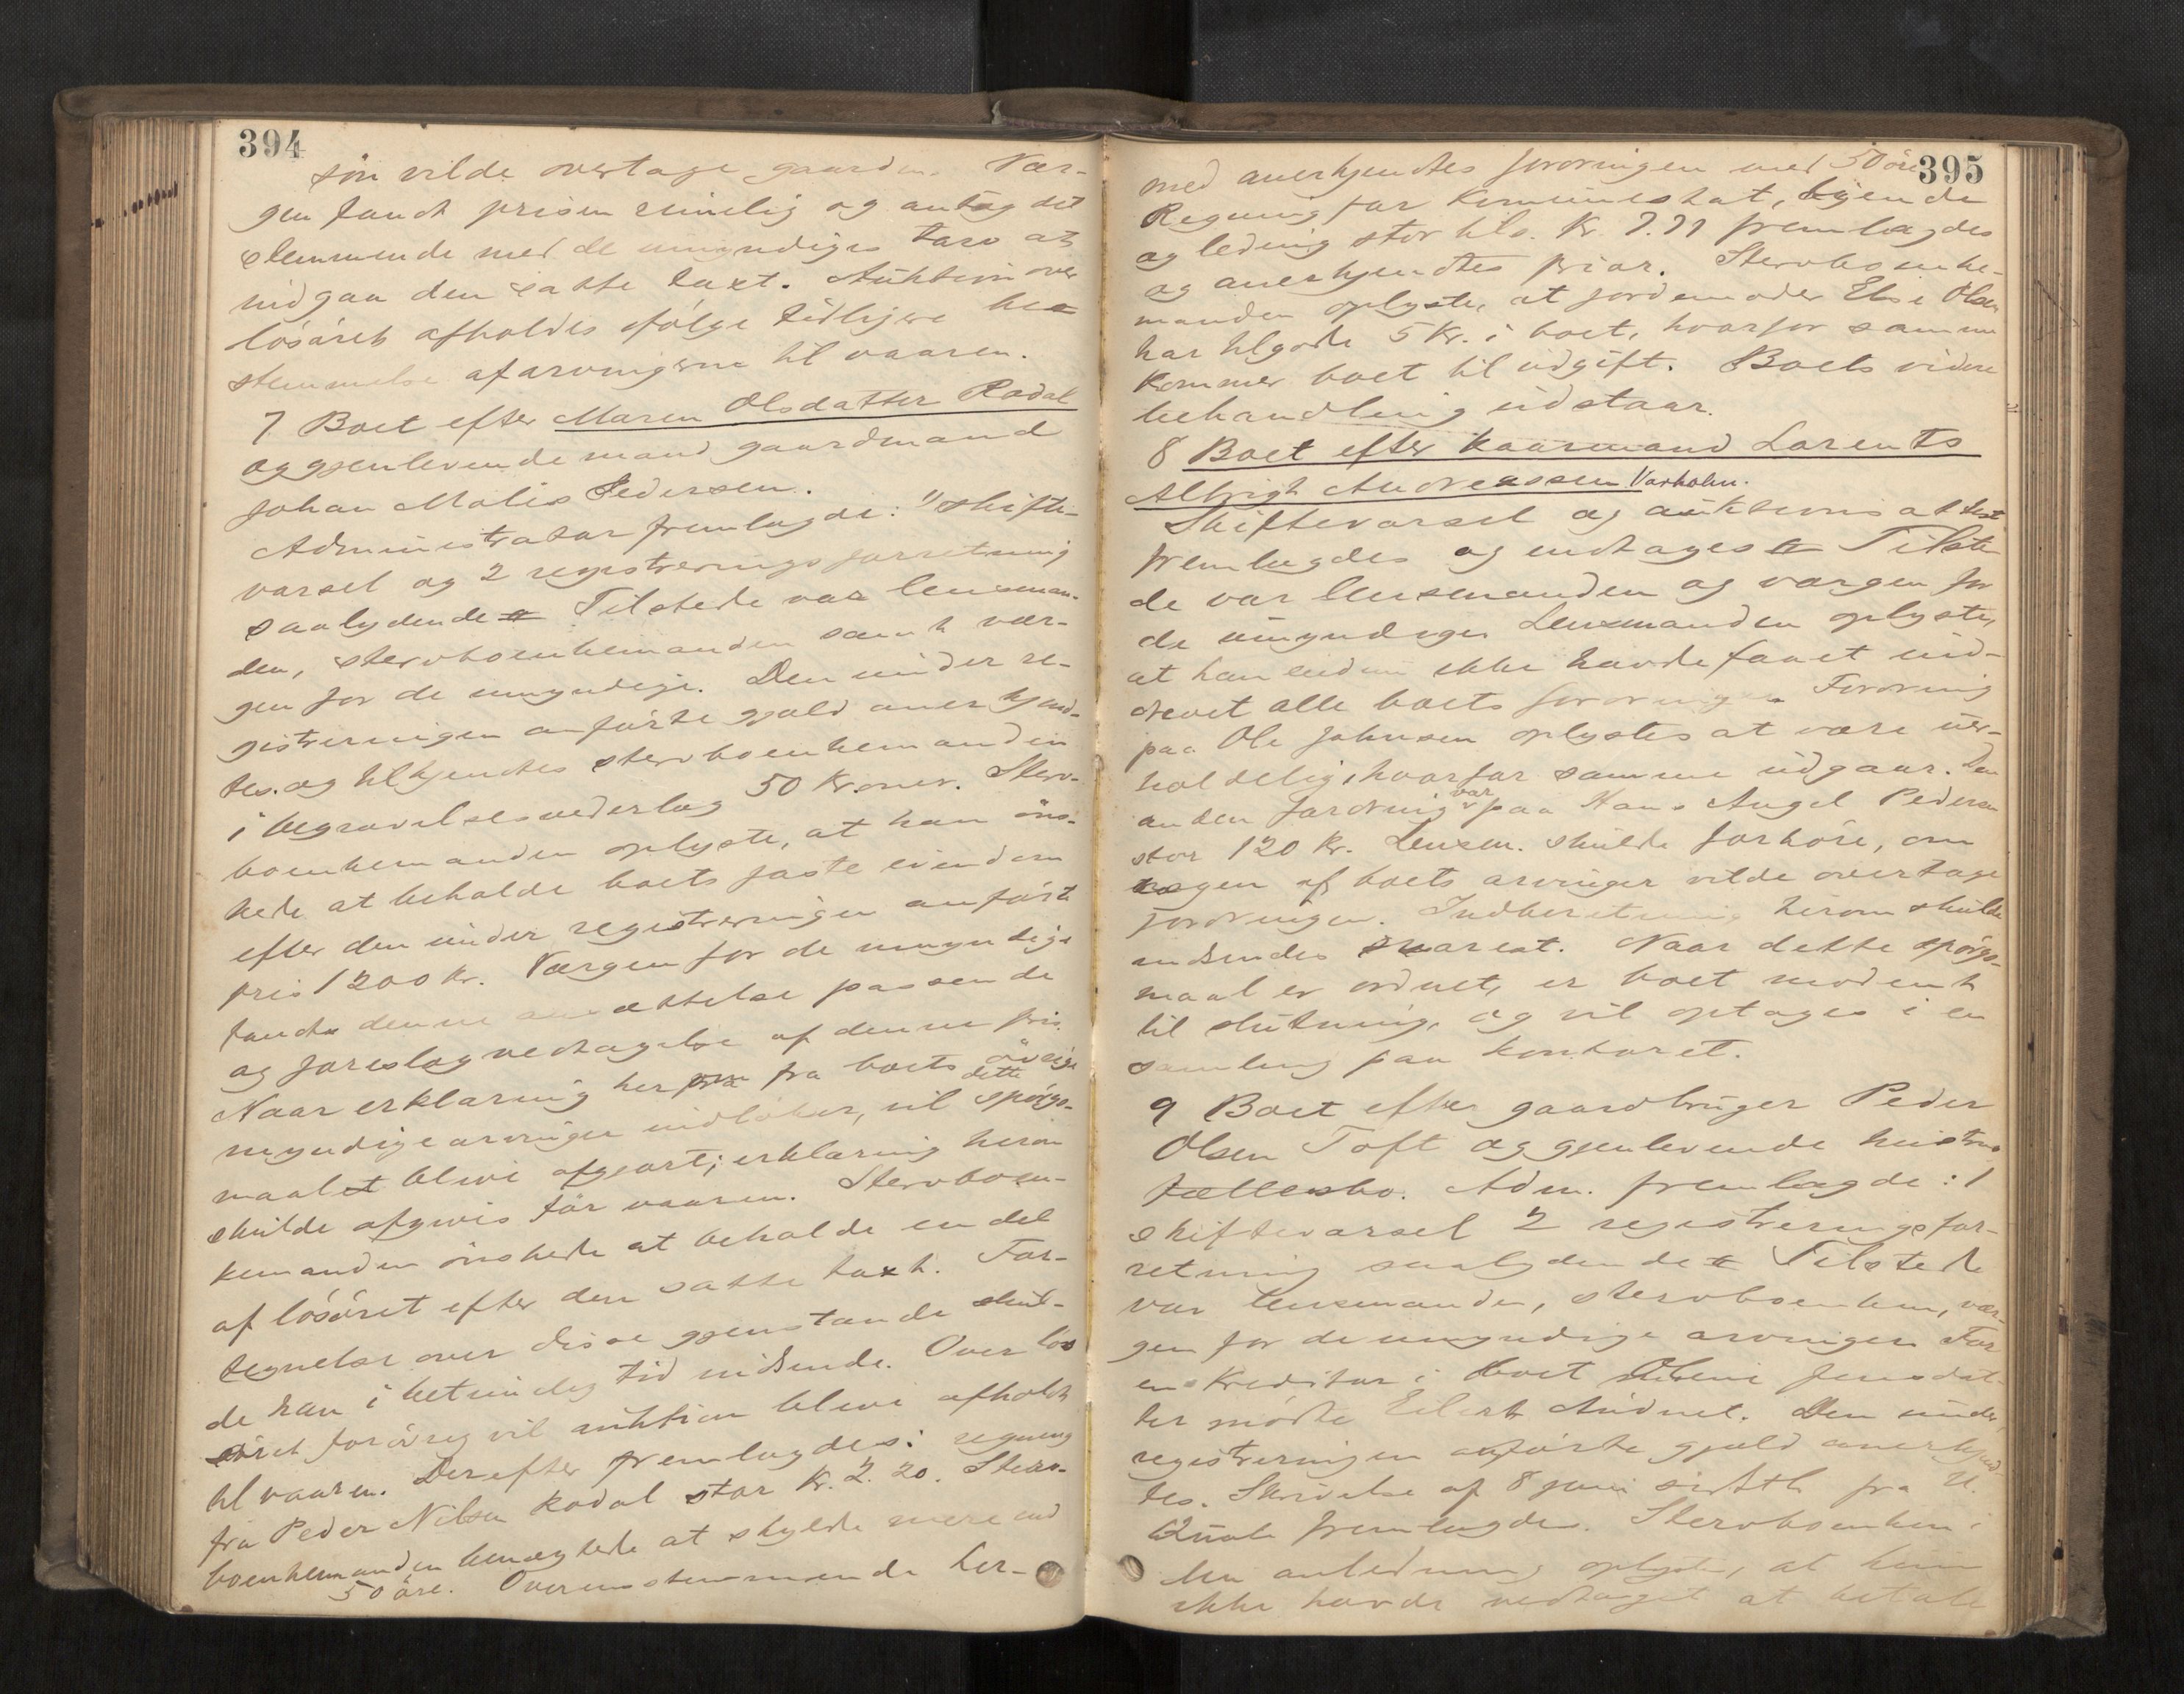 394
søn vilde overtage gaarden. Vær-
gen fandt prisen rimelig og antog det
stemmende med de umyndiges tarv at
indgaa den satte taxt. Auktion over
løsøret afholdes ifølge tidligere be-
stemmelse af arvingerne til vaaren.
7 Boet efter Maren Olsdatter Rødal
og gjenlevende mand gaardmand
Johan Mølis Pedersen.
Administrator fremlagde: 1) skifte-
varsel og 2 registreringsforretning
saalydende # Tilstede var lensman-
den, stervboenkemanden samt vær-
gen for de umyndige. Den under re-
gistreringen anførte gjæld anerkjend-
tes og tilkjendtes stervboenkemanden
i begravelsesvederlag 50 Kroner. Sterv-
boenkemanden oplyste, at han øns-
kede at beholde boets faste eiendom
efter den under registreringen anførte
pris 1200 kr. Værgen for de umyndige
fandt denne ansættelse passende
og foreslog vedtagelse af denne pris.
Naar erklæring her fra boets øvrige
myndige arvinger indløber, vil dette spørgs-
maal blive afgjort; erklæring herom
skulde afgives før vaaren. Stervboen-
kemanden ønskede at beholde en del
af løsøret efter den satte taxt. For-
tegnelse over disse gjenstande skul-
de han i betimelig tid indsende. Over løs
øret forøvrig vil auktion blive afholdt
til vaaren. Derefter fremlagdes: regning
fra Peder Nilsen Rødal stor kr. 2.20. Sterv-
boenkemanden benægtede at skylde mere end
50 øre. Overensstemmende her-
395
med anerkjendtes fordringen med 50 øre
Regning for Kommuneskat, tiende
og leding stor tils. Kr. 7.71 fremlagdes
og anerkjendtes prior. Stervboenke-
manden oplyste, at jordemoder Else Olsen
har tilgode 5 kr. i boet, hvorfor samme
kommer boet til udgift. Boets videre
behandling udstaar.
8 Boet efter kaarmand Lorents
Albrigt Andreassen Varholm.
Skiftevarsel og auktionsattest
fremlagdes og indtages # Tilste
de var lensmanden og værgen for
de umyndige. Lensmanden oplyste,
at han endnu ikke havde faaet ind-
drevet alle boets fordringer. Fordring
paa Ole Johnsen oplystes at være uer-
holdelig, hvorfor samme udgaar. Den
anden fordring var paa Hans Angel Pedersen
stor 120 kr. Lensm. skulde forhøre, om
nogen af boets arvinger vilde overtage
fordringen. Indberetning herom skulde
indsendes snarest. Naar dette spørgs-
maal er ordnet, er boet modent
til slutning, og vil optages i en
samling paa kontoret.
9 Boet efter gaardbruger Peder
Olsen Toft og gjenlevende hustrus
fællesbo. Adm. fremlagde: 1
skiftevarsel 2 registreringsfor-
retning saalydende # Tilstede
var lensmanden, stervboenken, vær-
gen for de umyndige arvinger For
en Kreditor i boet Jensdat-
ter mødte Eilert Audnel. Den under
registreringen anførte gjæld anerkjend-
tes. Skrivelse af 8 juni sidstl. fra U.
Quale fremlagdes. Stervboenken i
den anledning oplyste, at hun
ikke havde vedtaget at betale